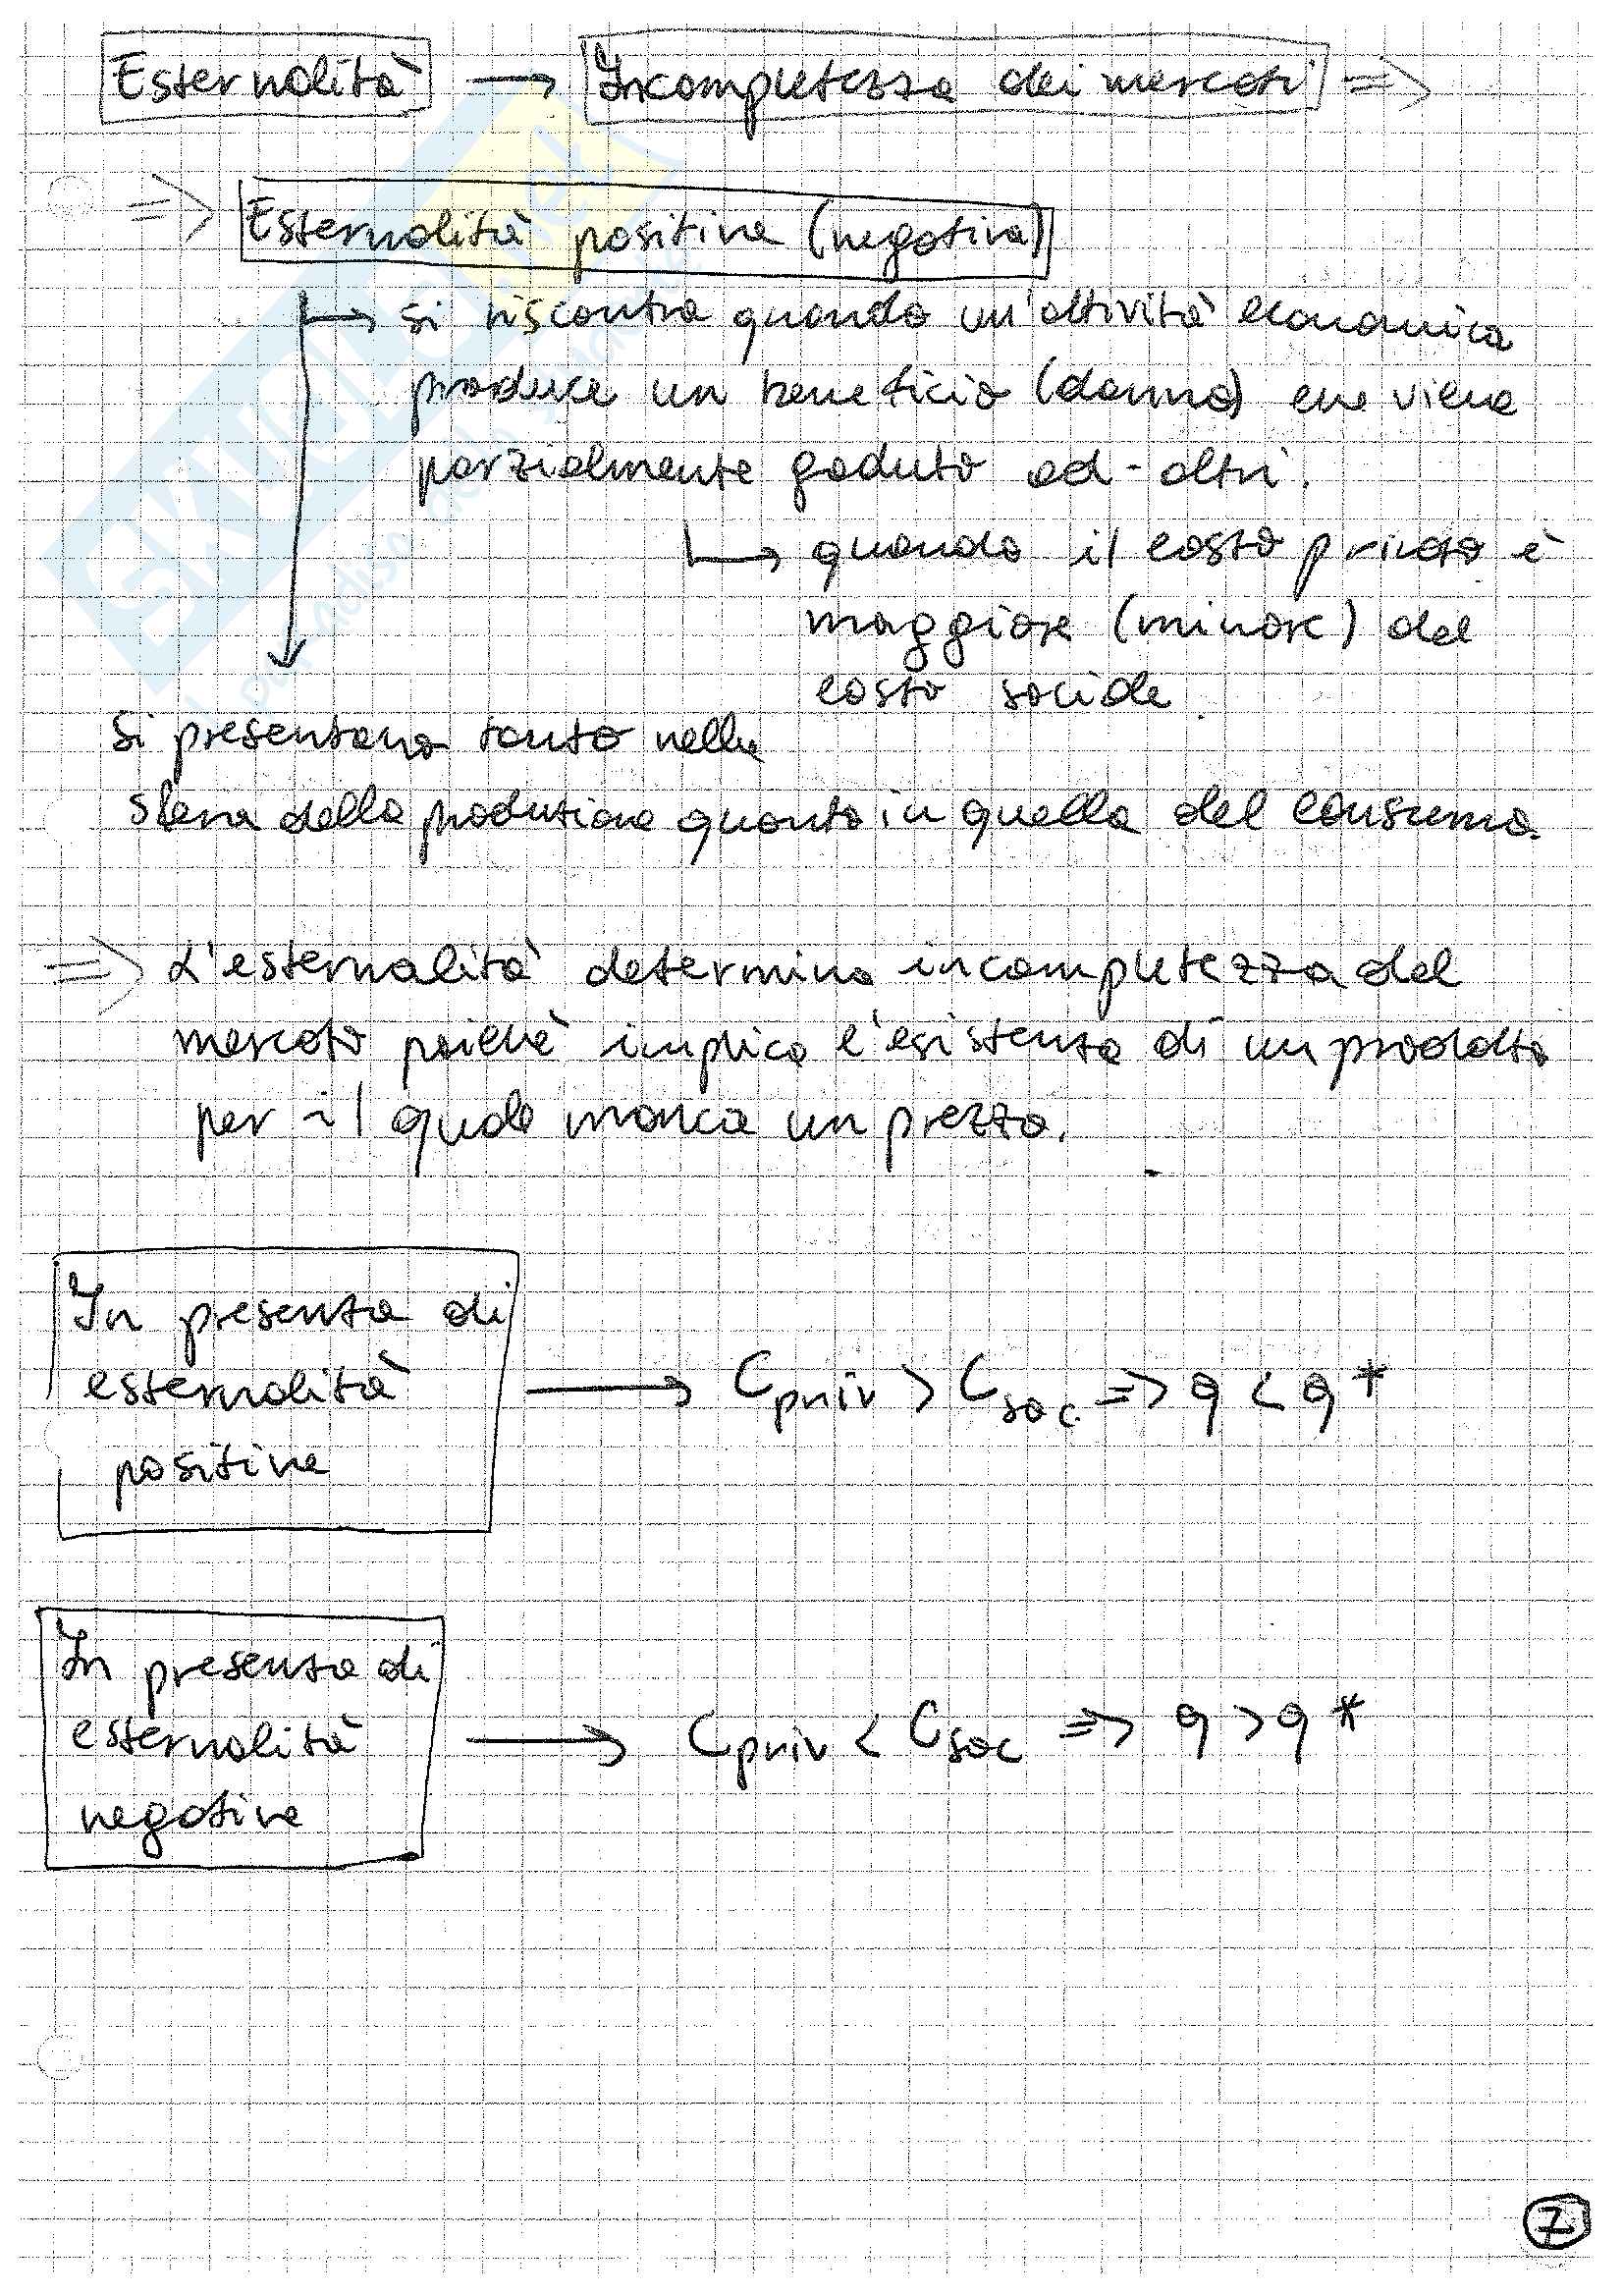 Esternalità → Incompletezza dei mercati ⇒
⇒ Esternalità positiva (negativa)
↳ si riscontra quando un'attività economica
produce un beneficio (danno) che viene
parzialmente goduto ad-altri.
↳ quando il costo privato è
maggiore (minore) del
costo sociale.
Si presentano tanto nella
sfera della produzione quanto in quella del consumo.
⇒ L'esternalità determina incompletezza del
mercato poichè implica l'esistenza di un prodotto
per il quale manca un prezzo.
In presenza di
esternalità
positive
→ Cpriv > Csoc. ⇒ q < q*
In presenza di
esternalità
negative
→ Cpriv < Csoc ⇒ q > q*
7